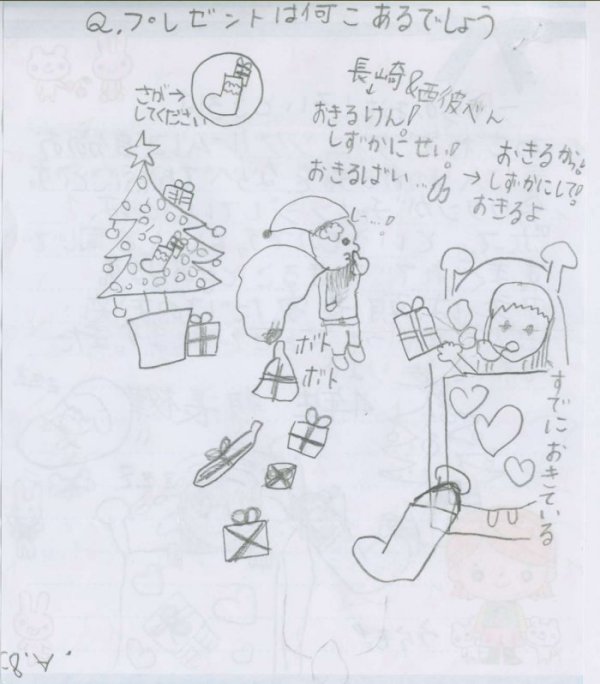 Q.プレゼントは何こあるでしょう
さがして→
ください
長崎&西彼べん
おきるけん!
しずかにせい!
おきるばい…
→おきるから!
しずかにして!
おきるよ
し…!
ボト
ボト
すでにおきている
A.8こ